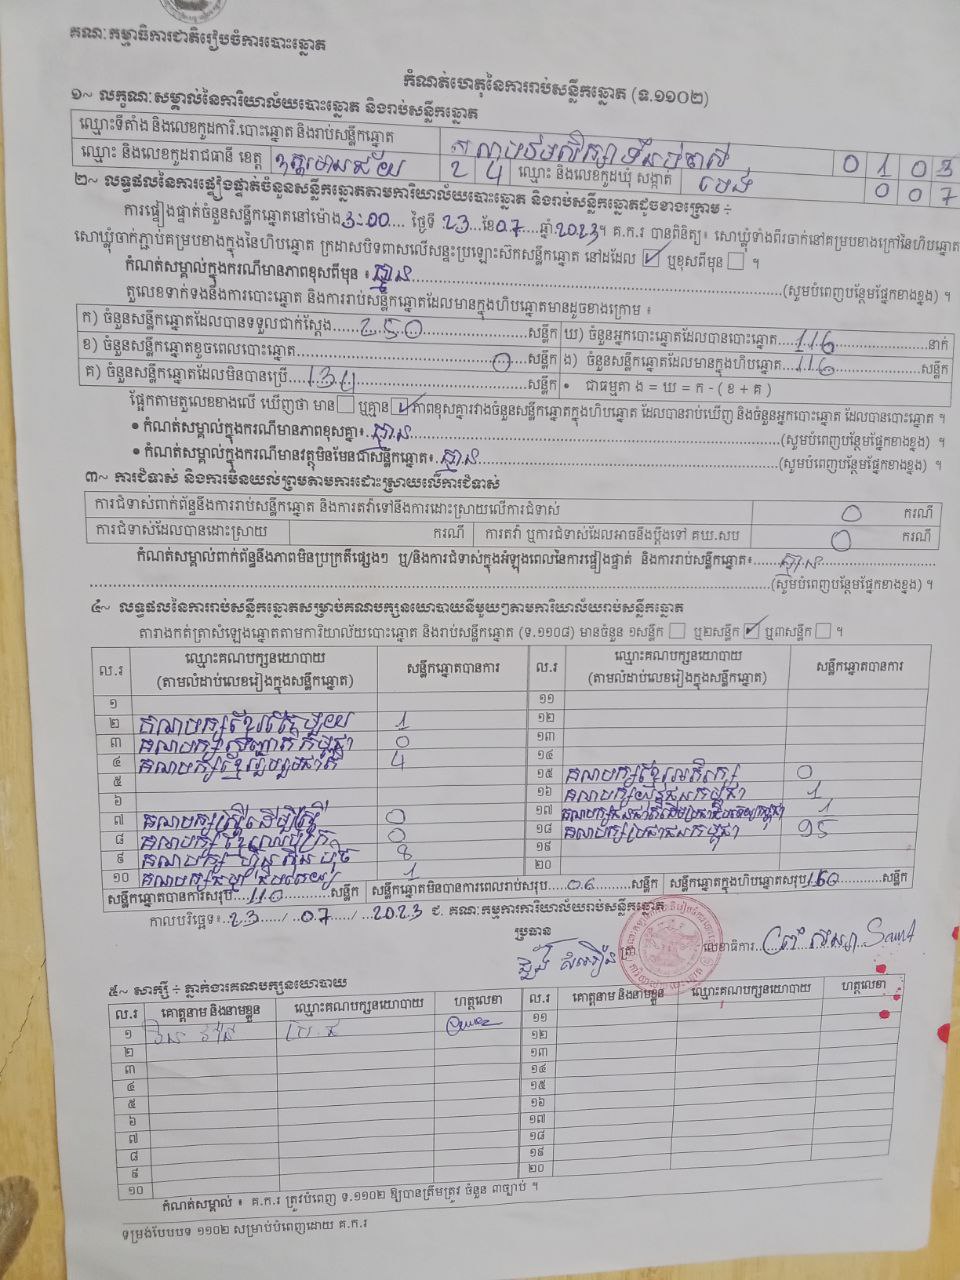 គណៈកម្មាធិការជាតិរៀបចំការបោះឆ្នោត
កំណត់ហេតុនៃការរាប់សន្លឹកឆ្នោត (ទ.១១០២)
១~ លក្ខណៈសម្គាល់នៃការិយាល័យបោះឆ្នោត និងរាប់សន្លឹកឆ្នោត
ឈ្មោះទីតាំង និងលេខកូដការិ.បោះឆ្នោត និងរាប់សន្លឹកឆ្នោត 0 1 0 3
ឈ្មោះ និងលេខកូដរាជធានី ខេត្ត 2 4 ឈ្មោះ និងលេខកូដឃុំ សង្កាត់ 0 0 7
២~ លទ្ធផលនៃការផ្ទៀងផ្ទាត់ចំនួនសន្លឹកឆ្នោតតាមការិយាល័យបោះឆ្នោត និងរាប់សន្លឹកឆ្នោតដូចខាងក្រោម ÷
ការផ្ទៀងផ្ទាត់ចំនួនសន្លឹកឆ្នោតនៅម៉ោង 3:00 ថ្ងៃទី 23 ខែ 07 ឆ្នាំ 2023។ គ.ក.រ បានពិនិត្យ៖ សោឃ្លុំទាំងពីរចាក់នៅគម្របខាងក្រៅនៃហិបឆ្នោត
សោឃ្លុំចាក់ភ្ជាប់គម្របខាងក្នុងនៃហិបឆ្នោត ក្រដាសបិទពាសលើសន្ទះប្រឡោះស៊កសន្លឹកឆ្នោត នៅដដែល ☑ ឬខុសពីមុន ☐ ។
កំណត់សម្គាល់ក្នុងករណីមានភាពខុសពីមុន ៖ គ្មាន (សូមបំពេញបន្ថែមផ្នែកខាងខ្នង) ។
តួលេខទាក់ទងនឹងការបោះឆ្នោត និងការរាប់សន្លឹកឆ្នោតដែលមានក្នុងហិបឆ្នោតមានដូចខាងក្រោម ៖
ក) ចំនួនសន្លឹកឆ្នោតដែលបានទទួលជាក់ស្តែង 250 សន្លឹក ឃ) ចំនួនអ្នកបោះឆ្នោតដែលបានបោះឆ្នោត 116 នាក់
ខ) ចំនួនសន្លឹកឆ្នោតខូចពេលបោះឆ្នោត 0 សន្លឹក ង) ចំនួនសន្លឹកឆ្នោតដែលមានក្នុងហិបឆ្នោត 116 សន្លឹក
គ) ចំនួនសន្លឹកឆ្នោតដែលមិនបានប្រើ 134 សន្លឹក • ជាធម្មតា ង = ឃ = ក - ( ខ + គ )
ផ្អែកតាមតួលេខខាងលើ ឃើញថា មាន ☐ ឬគ្មាន ☑ ភាពខុសគ្នារវាងចំនួនសន្លឹកឆ្នោតក្នុងហិបឆ្នោត ដែលបានរាប់ឃើញ និងចំនួនអ្នកបោះឆ្នោត ដែលបានបោះឆ្នោត ។
• កំណត់សម្គាល់ក្នុងករណីមានភាពខុសគ្នា៖ គ្មាន (សូមបំពេញបន្ថែមផ្នែកខាងខ្នង) ។
• កំណត់សម្គាល់ក្នុងករណីមានវត្ថុមិនមែនជាសន្លឹកឆ្នោត៖ គ្មាន (សូមបំពេញបន្ថែមផ្នែកខាងខ្នង) ។
៣~ ការជំទាស់ និងការមិនយល់ព្រមតាមការដោះស្រាយលើការជំទាស់
ការជំទាស់ពាក់ព័ន្ធនឹងការរាប់សន្លឹកឆ្នោត និងការតវ៉ាទៅនឹងការដោះស្រាយលើការជំទាស់ 0 ករណី
ការជំទាស់ដែលបានដោះស្រាយ ករណី ការតវ៉ា ឬការជំទាស់ដែលអាចនឹងប្តឹងទៅ គឃ.សប 0 ករណី
កំណត់សម្គាល់ពាក់ព័ន្ធនឹងភាពមិនប្រក្រតីផ្សេងៗ ឬ/និងការជំទាស់ក្នុងអំឡុងពេលនៃការផ្ទៀងផ្ទាត់ និងការរាប់សន្លឹកឆ្នោត៖ គ្មាន
(សូមបំពេញបន្ថែមផ្នែកខាងខ្នង) ។
៤~ លទ្ធផលនៃការរាប់សន្លឹកឆ្នោតសម្រាប់គណបក្សនយោបាយនីមួយៗតាមការិយាល័យរាប់សន្លឹកឆ្នោត
តារាងកត់ត្រាសំឡេងឆ្នោតតាមការិយាល័យបោះឆ្នោត និងរាប់សន្លឹកឆ្នោត (ទ.១១០៨) មានចំនួន ១សន្លឹក ☐ ឬ២សន្លឹក ☑ ឬ៣សន្លឹក ☐ ។
ល.រ ឈ្មោះគណបក្សនយោបាយ សន្លឹកឆ្នោតបានការ ល.រ ឈ្មោះគណបក្សនយោបាយ សន្លឹកឆ្នោតបានការ
(តាមលំដាប់លេខរៀងក្នុងសន្លឹកឆ្នោត) (តាមលំដាប់លេខរៀងក្នុងសន្លឹកឆ្នោត)
១ ១១
២ 1 ១២
៣ 0 ១៣
៤ គណបក្សខ្មែររួបរួមជាតិ 4 ១៤
៥ ១៥ គណបក្សខ្មែរអភិរក្ស 0
៦ ១៦ 1
៧ គណបក្សស្ត្រីដើម្បីស្ត្រី 0 ១៧ 1
៨ 0 ១៨ គណបក្សប្រជាជនកម្ពុជា 95
៩ គណបក្សហ៊្វុនស៊ិនប៉ិច 8 ១៩
១០ 1 ២០
សន្លឹកឆ្នោតបានការសរុប 110 សន្លឹក សន្លឹកឆ្នោតមិនបានការពេលរាប់សរុប 06 សន្លឹក សន្លឹកឆ្នោតក្នុងហិបឆ្នោតសរុប សន្លឹក
កាលបរិច្ឆេទ៖ 23 / 07 / 2023 ជ. គណៈកម្មការការិយាល័យរាប់សន្លឹកឆ្នោត
ប្រធាន
ត្រា លេខាធិការ
៥~ សាក្សី ÷ ភ្នាក់ងារគណបក្សនយោបាយ
ល.រ គោត្តនាម និងនាមខ្លួន ឈ្មោះគណបក្សនយោបាយ ហត្ថលេខា ល.រ គោត្តនាម និងនាមខ្លួន ឈ្មោះគណបក្សនយោបាយ ហត្ថលេខា
១ ១១
២ ១២
៣ ១៣
៤ ១៤
៥ ១៥
៦ ១៦
៧ ១៧
៨ ១៨
៩ ១៩
១០ ២០
កំណត់សម្គាល់ ៖ គ.ក.រ ត្រូវបំពេញ ទ.១១០២ ឱ្យបានត្រឹមត្រូវ ចំនួន ៣ច្បាប់ ។
ទម្រង់បែបបទ ១១០២ សម្រាប់បំពេញដោយ គ.ក.រ